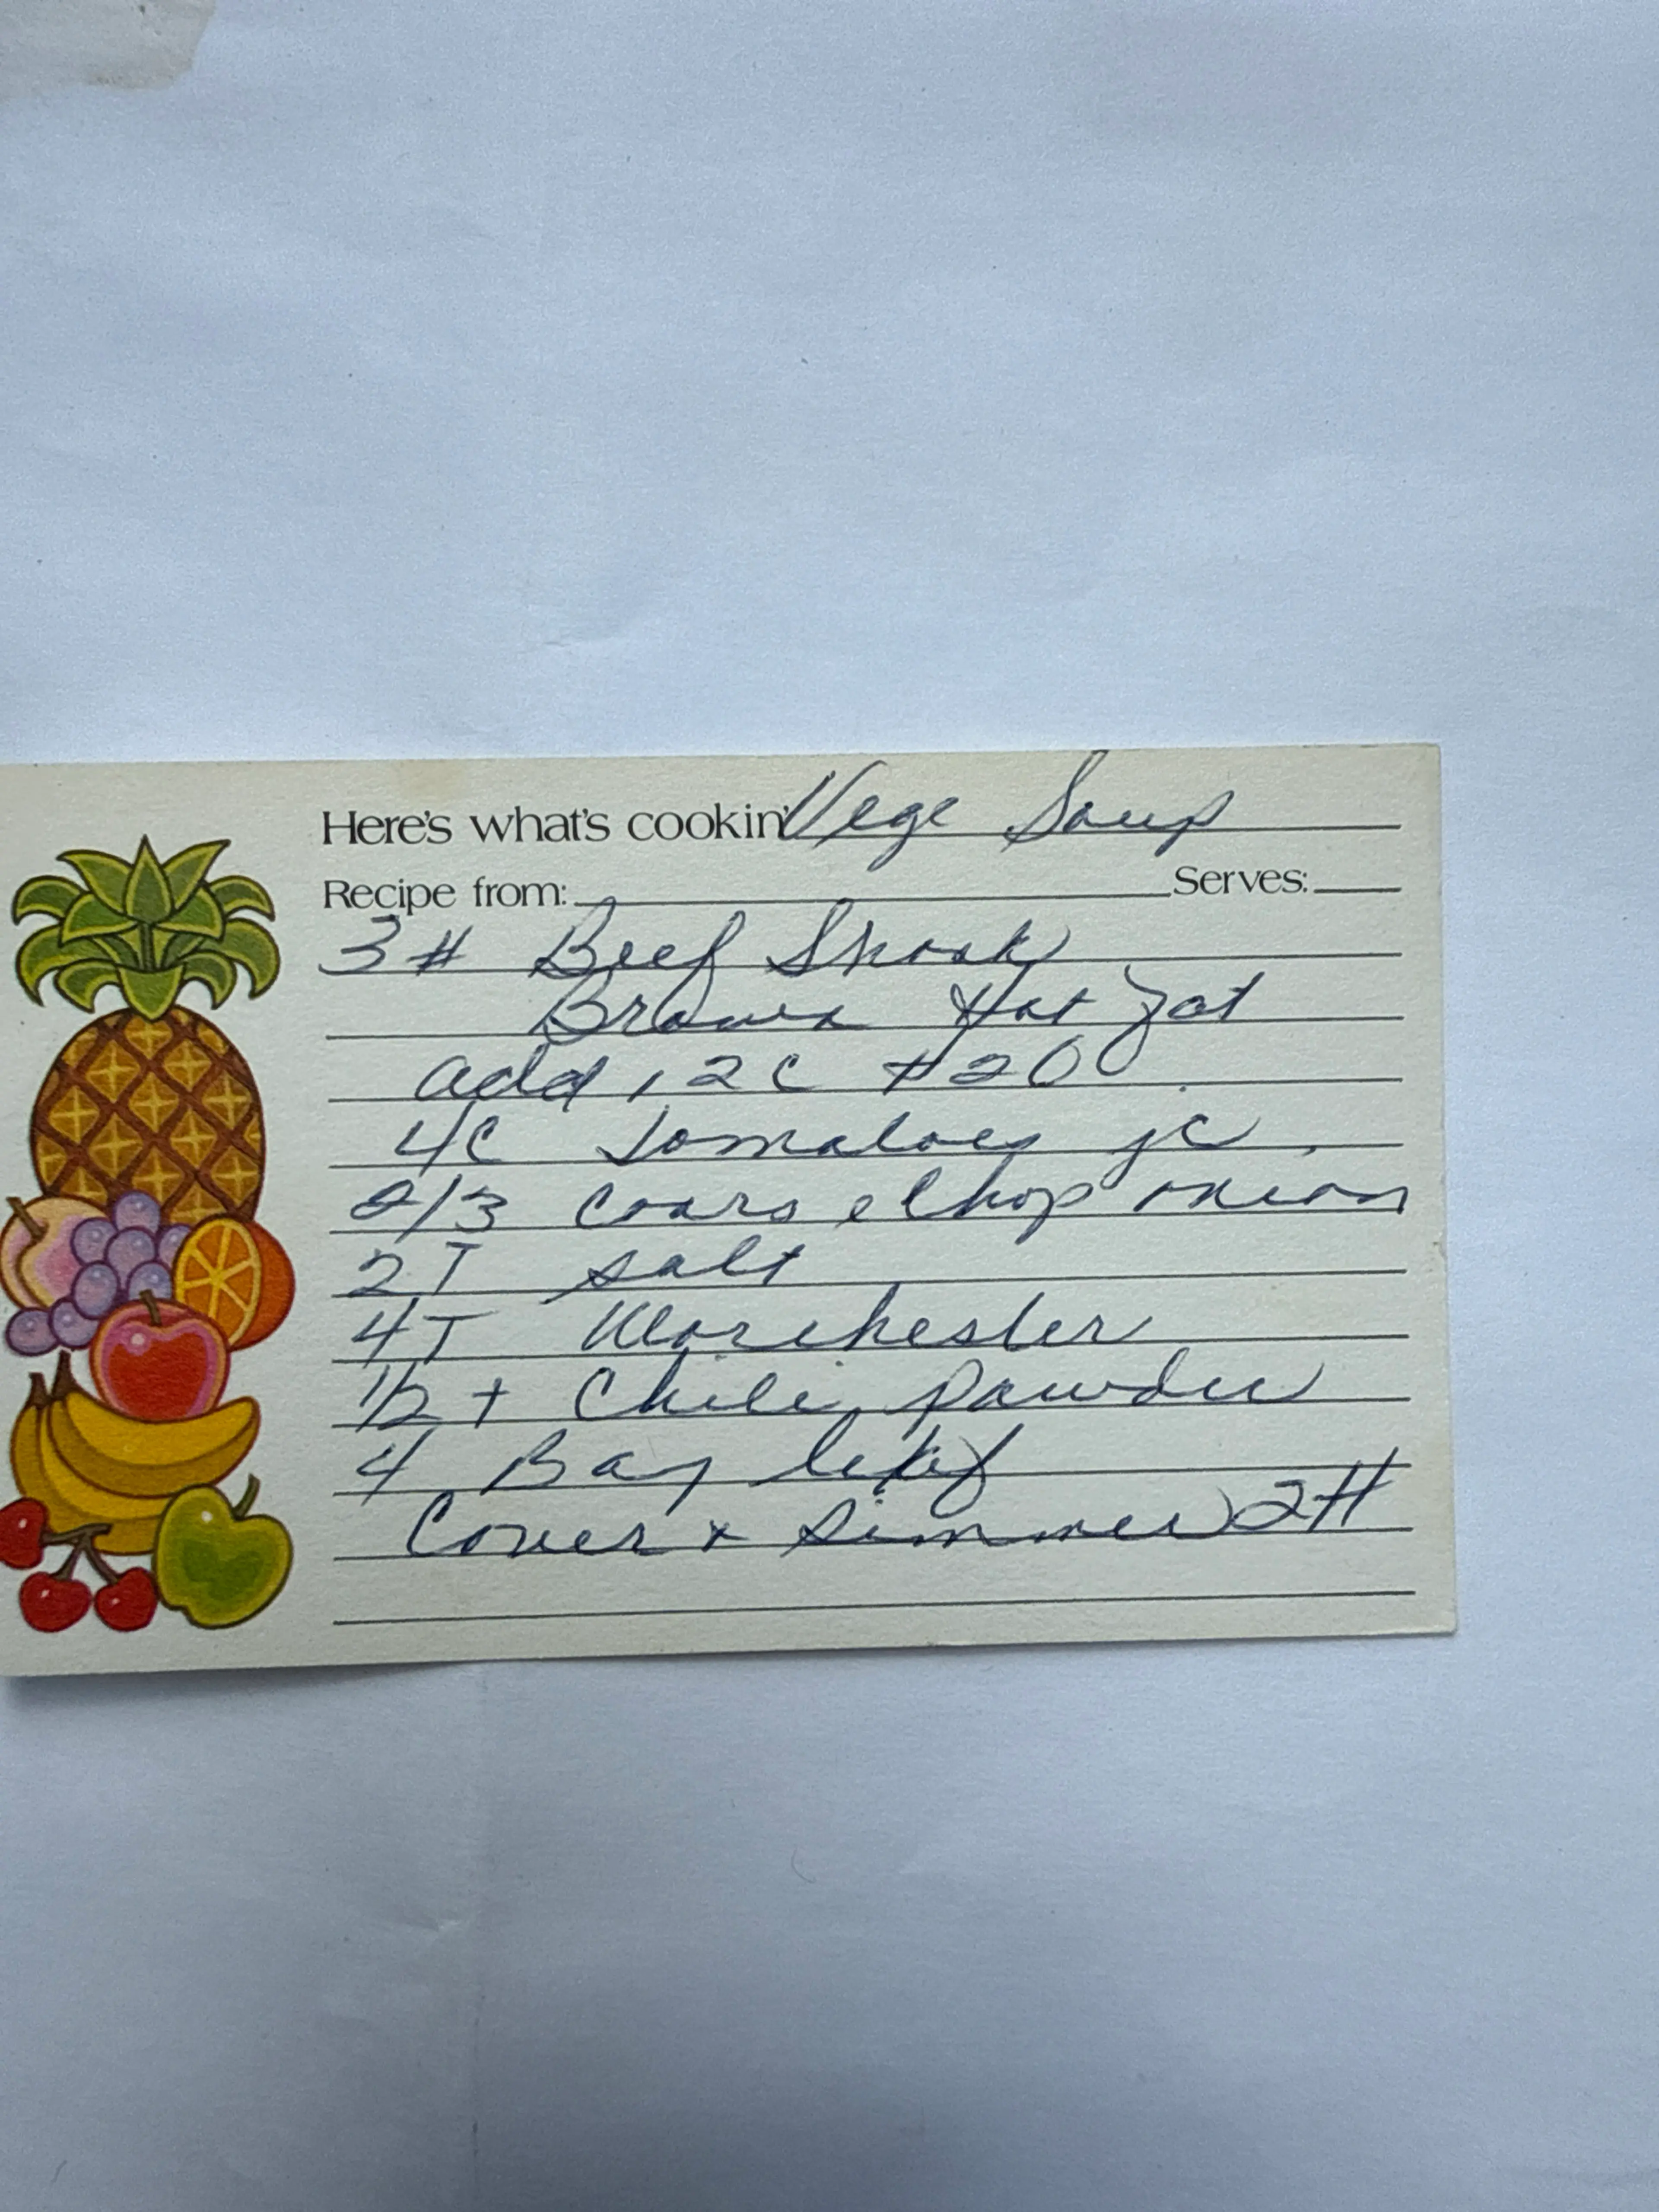 Here's what's cookin' Vege Soup
Recipe from: Serves:
3 # Beef Shank
Brown Hot Fat
add, 12 C H20
4C Tomatoes jc
2/3 coarse Chop onion
2T salt
4T Worchester
1/2 t Chili powder
4 Bay leaf
Cover + simmer 2H